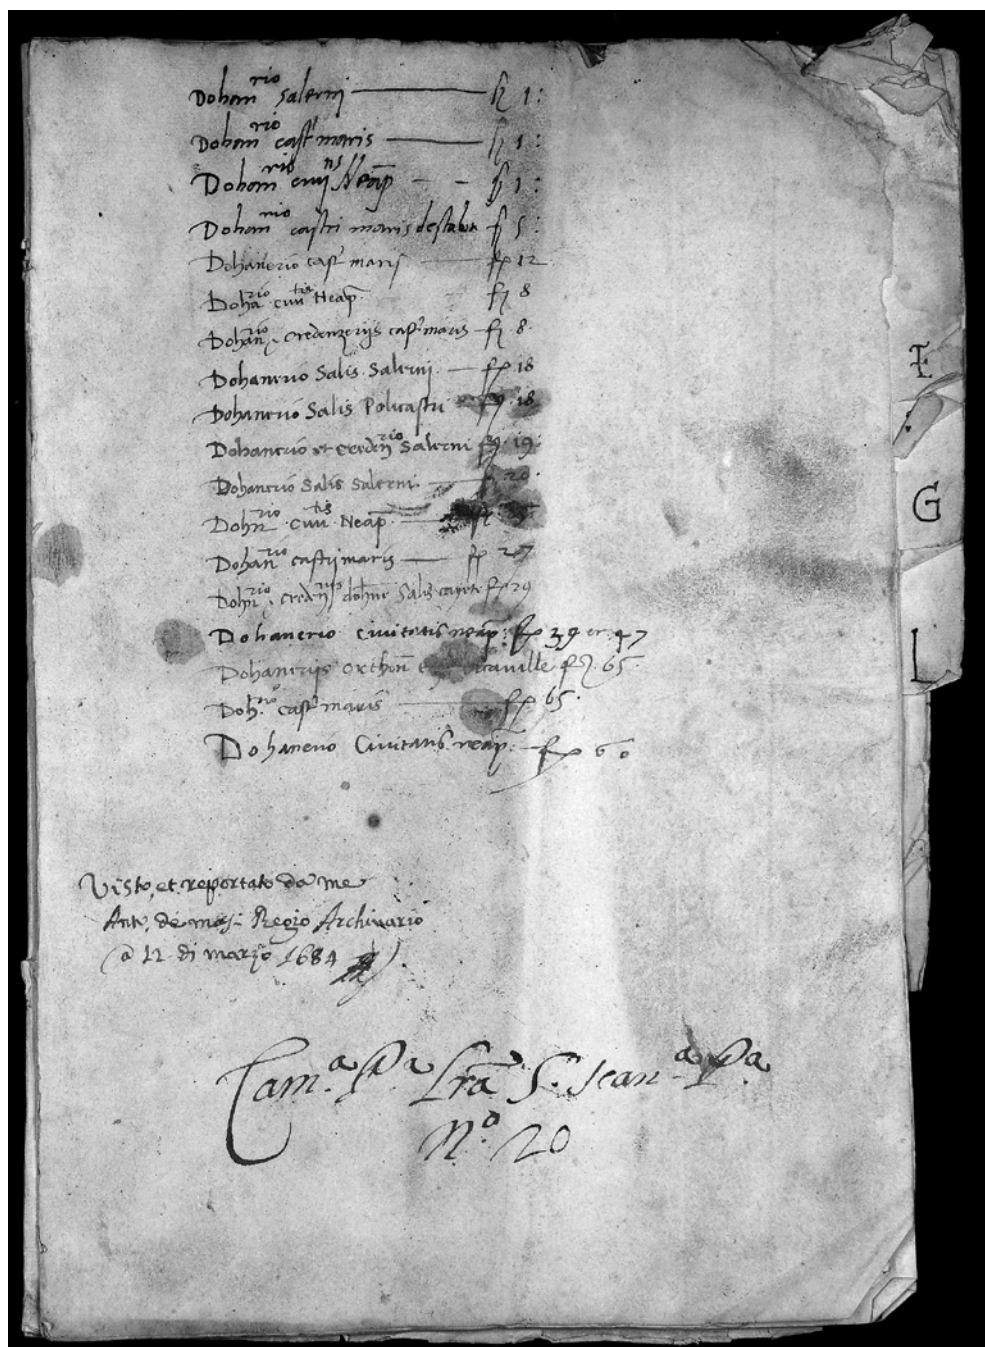 Dohan^rio Salerni — f 1:
Dohan^rio cast^i maris — f 1:
Dohan^rio civi^tis Neap — f 1:
Dohan^rio castri maris de stabia f 5:
Dohanerio cast^i maris — f 12
Doha^rio civi^tis Neap. f 8
Dohan^rio, credenzerijs cast^i maris f 8.
Dohanerio Salis Salerni — f 18
Dohanerio Salis Policastri f 18
Dohanerio et creden^rio Salerni f 19:
Dohanerio Salis Salerni f 20
Doha^rio Civi^tis Neap. — f
Dohan^rio castri maris — f 27
Doh^rio, creden^rijs dohne Salis cayete f 29
Dohanerio Civitatis neap: f 39 et 47
Dohanerijs orthon f 65.
Doh^rio cast^i maris f 65.
Dohanerio Civitatis neap: — f 60
E
G
L
Visto, et reportato da me
Ant. de masi Regio Archivario
a 12 di marzo 1684
Cam.^a P.^a Lra S. Scan.^a P.^a
N.^o 20